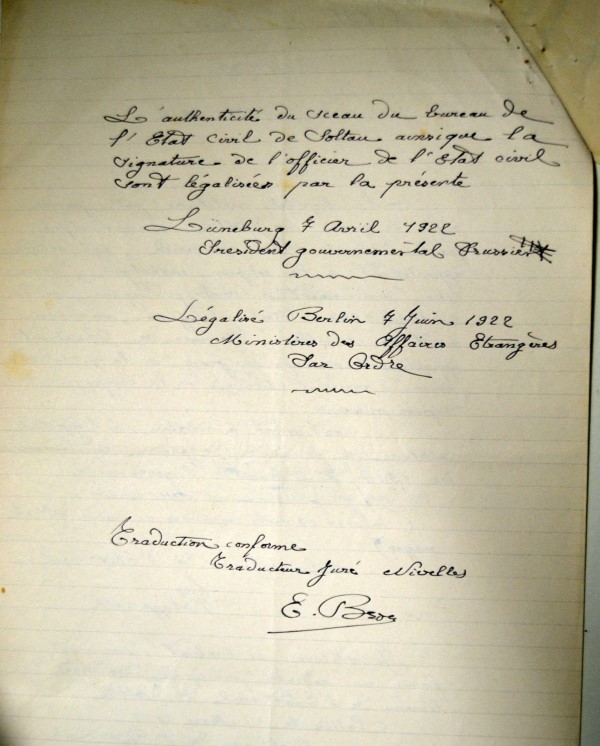 L'authenticité du sceau du bureau de
l'Etat civil de Soltau ainsique la
signature de l'officier de l'Etat civil
sont légalisées par la présente
Lüneburg 7 Avril 1922
President gouvernemental Prussien
Légalisé Berlin 7 Juin 1922
Ministères des Affaires Etrangères
Par Ordre
Traduction conforme
Traducteur Juré Nivelles
E.